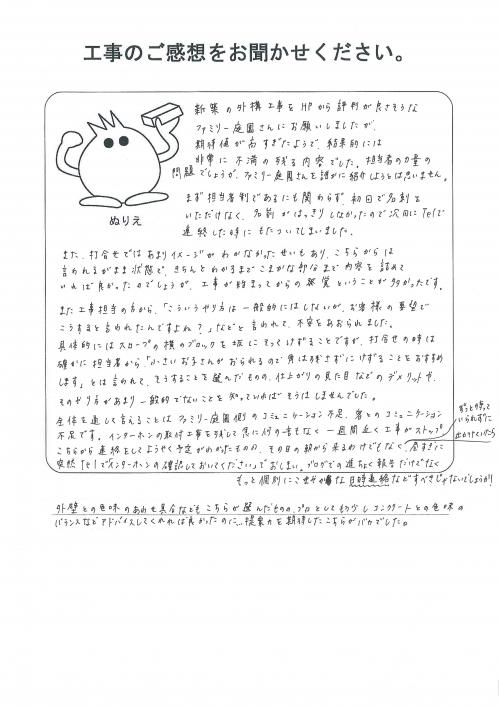 工事のご感想をお聞かせください。
ぬりえ
新築の外構工事をHPから評判が良さそうな
ファミリー庭園さんにお願いしましたが、
期待値が高すぎたようで、結果的には
非常に不満の残る内容でした。担当者の力量の
問題でしょうが、ファミリー庭園さんを誰かに紹介しようとは思いません。
まず担当者制であるにも関わらず、初回で名刺を
いただけなく、名前がはっきりしなかったので次回にTelで
連絡した時にもたついてしまいました。
また、打合せではあまりイメージがわかなかったせいもあり、こちらからは
言われるがまま状態で、きちんとわかるまでこまかな部分まで内容を詰めて
いれば良かったのでしょうが、工事が始まってからの感覚ということが多かったです。
また工事担当の方から、「こういうやり方は一般的にはしないが、お客様の要望で
こうすると言われたんですよね？」などと言われて、不安をあおられました。
具体的にはスロープの横のブロックを坂にそってけずることですが、打合せの時は
確かに担当者から「小さいお子さんがおられるので角は残さずにけずることをおすすめ
します」とは言われて、そうすることを選んだものの、仕上がりの見た目などのデメリットや、
そのやり方があまり一般的でないことを知っていればそうはしませんでした。
全体を通して言えることはファミリー庭園側のコミュニケーション不足、客とのコミュニケーション
不足です。インターホンの取付工事を残して急に何の音もなく一週間近く工事がストップ。
こちらから連絡をしてようやく予定がわかったものの、その日の朝から来るわけでもなく、昼すぎに
突然Telで「インターホンの確認しておいてください」でおしまい。ブログでの進ちょく報告だけでなく
ずっと待って
いられずに
出かけていたら
もっと個別にこまやかな日時連絡などすべきじゃないでしょうか!
外壁との色味のあわせ具合などもこちらが選んだものの、プロとしてもう少しコンクリートとの色味の
バランスなどアドバイスしてくれれば良かったのに…提案力を期待したこちらがバカでした。